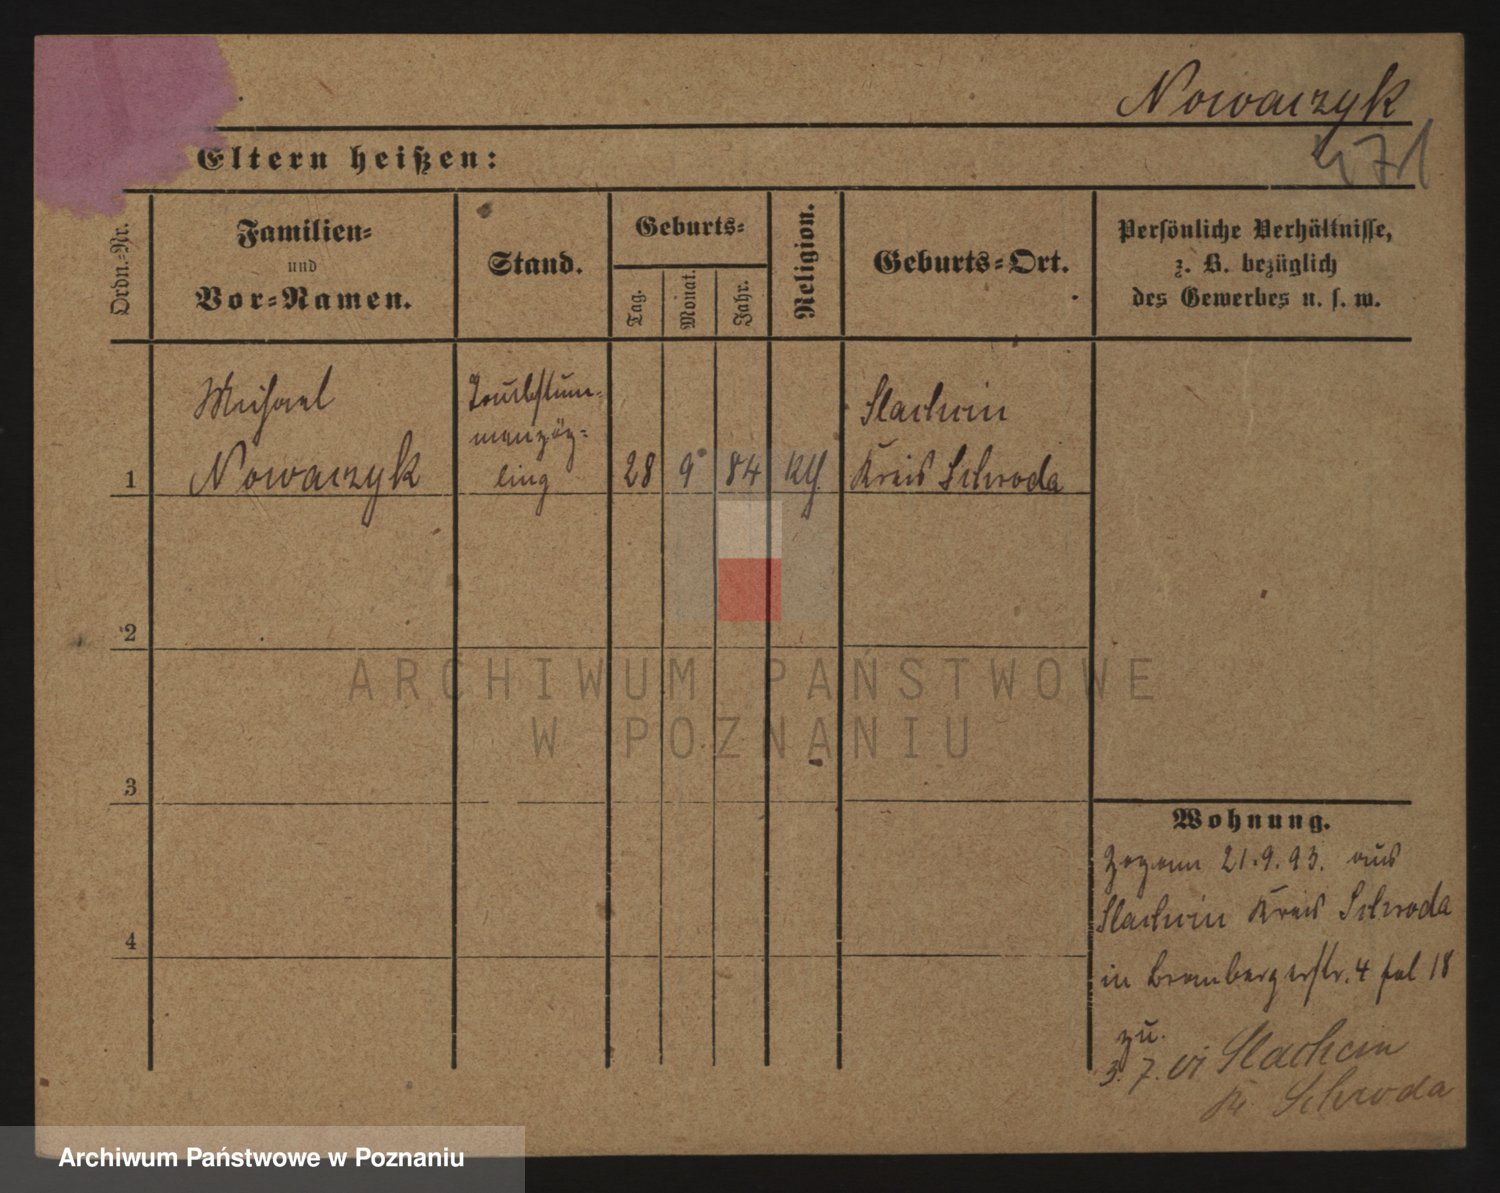 Nowaczyk
471
Eltern heißen:
Ordn.-Nr.
Familien-
und
Vor-Namen.
Stand.
Geburts-
Tag.
Monat.
Jahr.
Religion.
Geburts-Ort.
Persönliche Verhältnisse,
z. B. bezüglich
des Gewerbes u. s. w.
1
Michael
Nowaczyk
Taubstum-
menzög-
ling
28
9
84
kth
Slachcin
Kreis Schroda
2
3
4
Wohnung.
Zogann 21.9.93. aus
Slachcin Kreis Schroda
in Brombergerstr. 4 pol 18
zu.
3. 7. 01 Slachcin
Kr. Schroda
ARCHIWUM PAŃSTWOWE
W POZNANIU
Archiwum Państwowe w Poznaniu